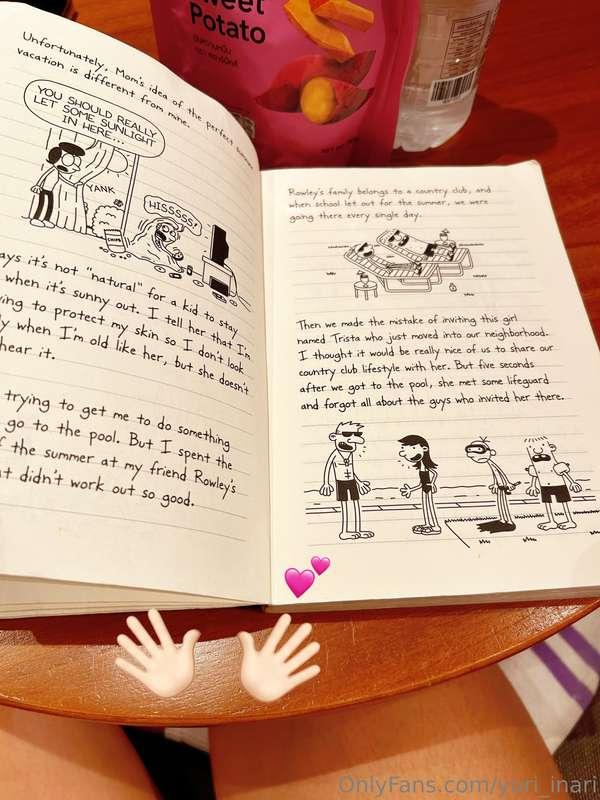 Sweet
Potato
Unfortunately, Mom's idea of the perfect summer
vacation is different from mine.
YOU SHOULD REALLY
LET SOME SUNLIGHT
IN HERE...
YANK
HISSSSS!
CHIPS
ays it's not "natural" for a kid to stay
when it's sunny out. I tell her that I'm
ying to protect my skin so I don't look
ly when I'm old like her, but she doesn't
hear it.
trying to get me to do something
go to the pool. But I spent the
f the summer at my friend Rowley's
at didn't work out so good.
Rowley's family belongs to a country club, and
when school let out for the summer, we were
going there every single day.
Then we made the mistake of inviting this girl
named Trista who just moved into our neighborhood.
I thought it would be really nice of us to share our
country club lifestyle with her. But five seconds
after we got to the pool, she met some lifeguard
and forgot all about the guys who invited her there.
OnlyFans.com/yuri_inari